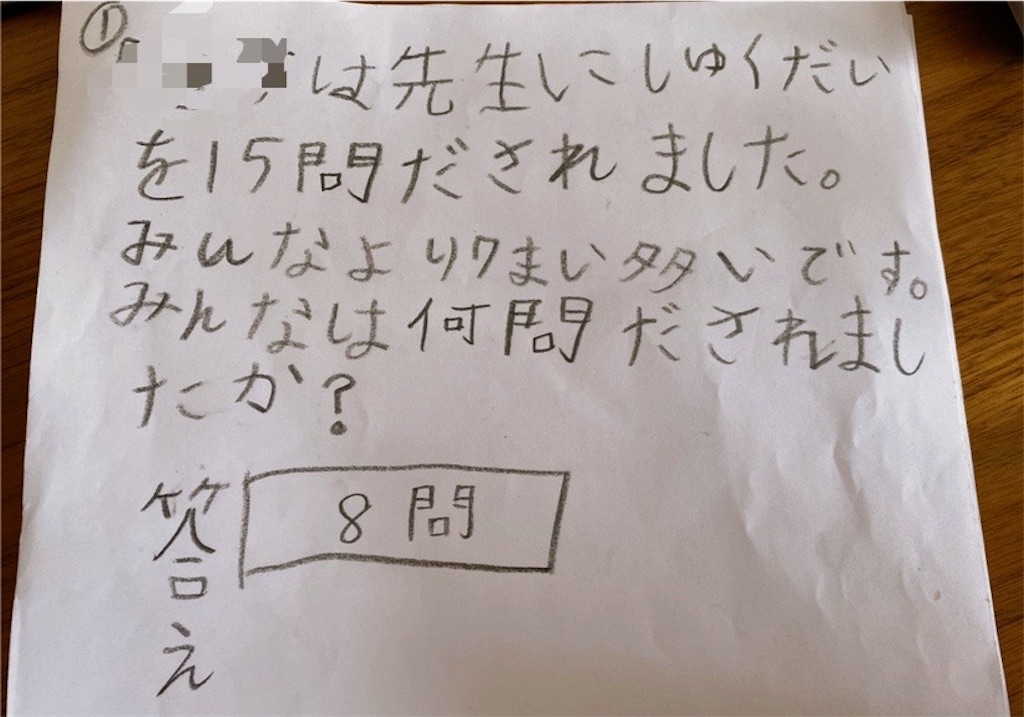 ①
は先生にしゅくだい
を15問だされました。
みんなより7まい多いです。
みんなは何問だされまし
たか?
答え 8問